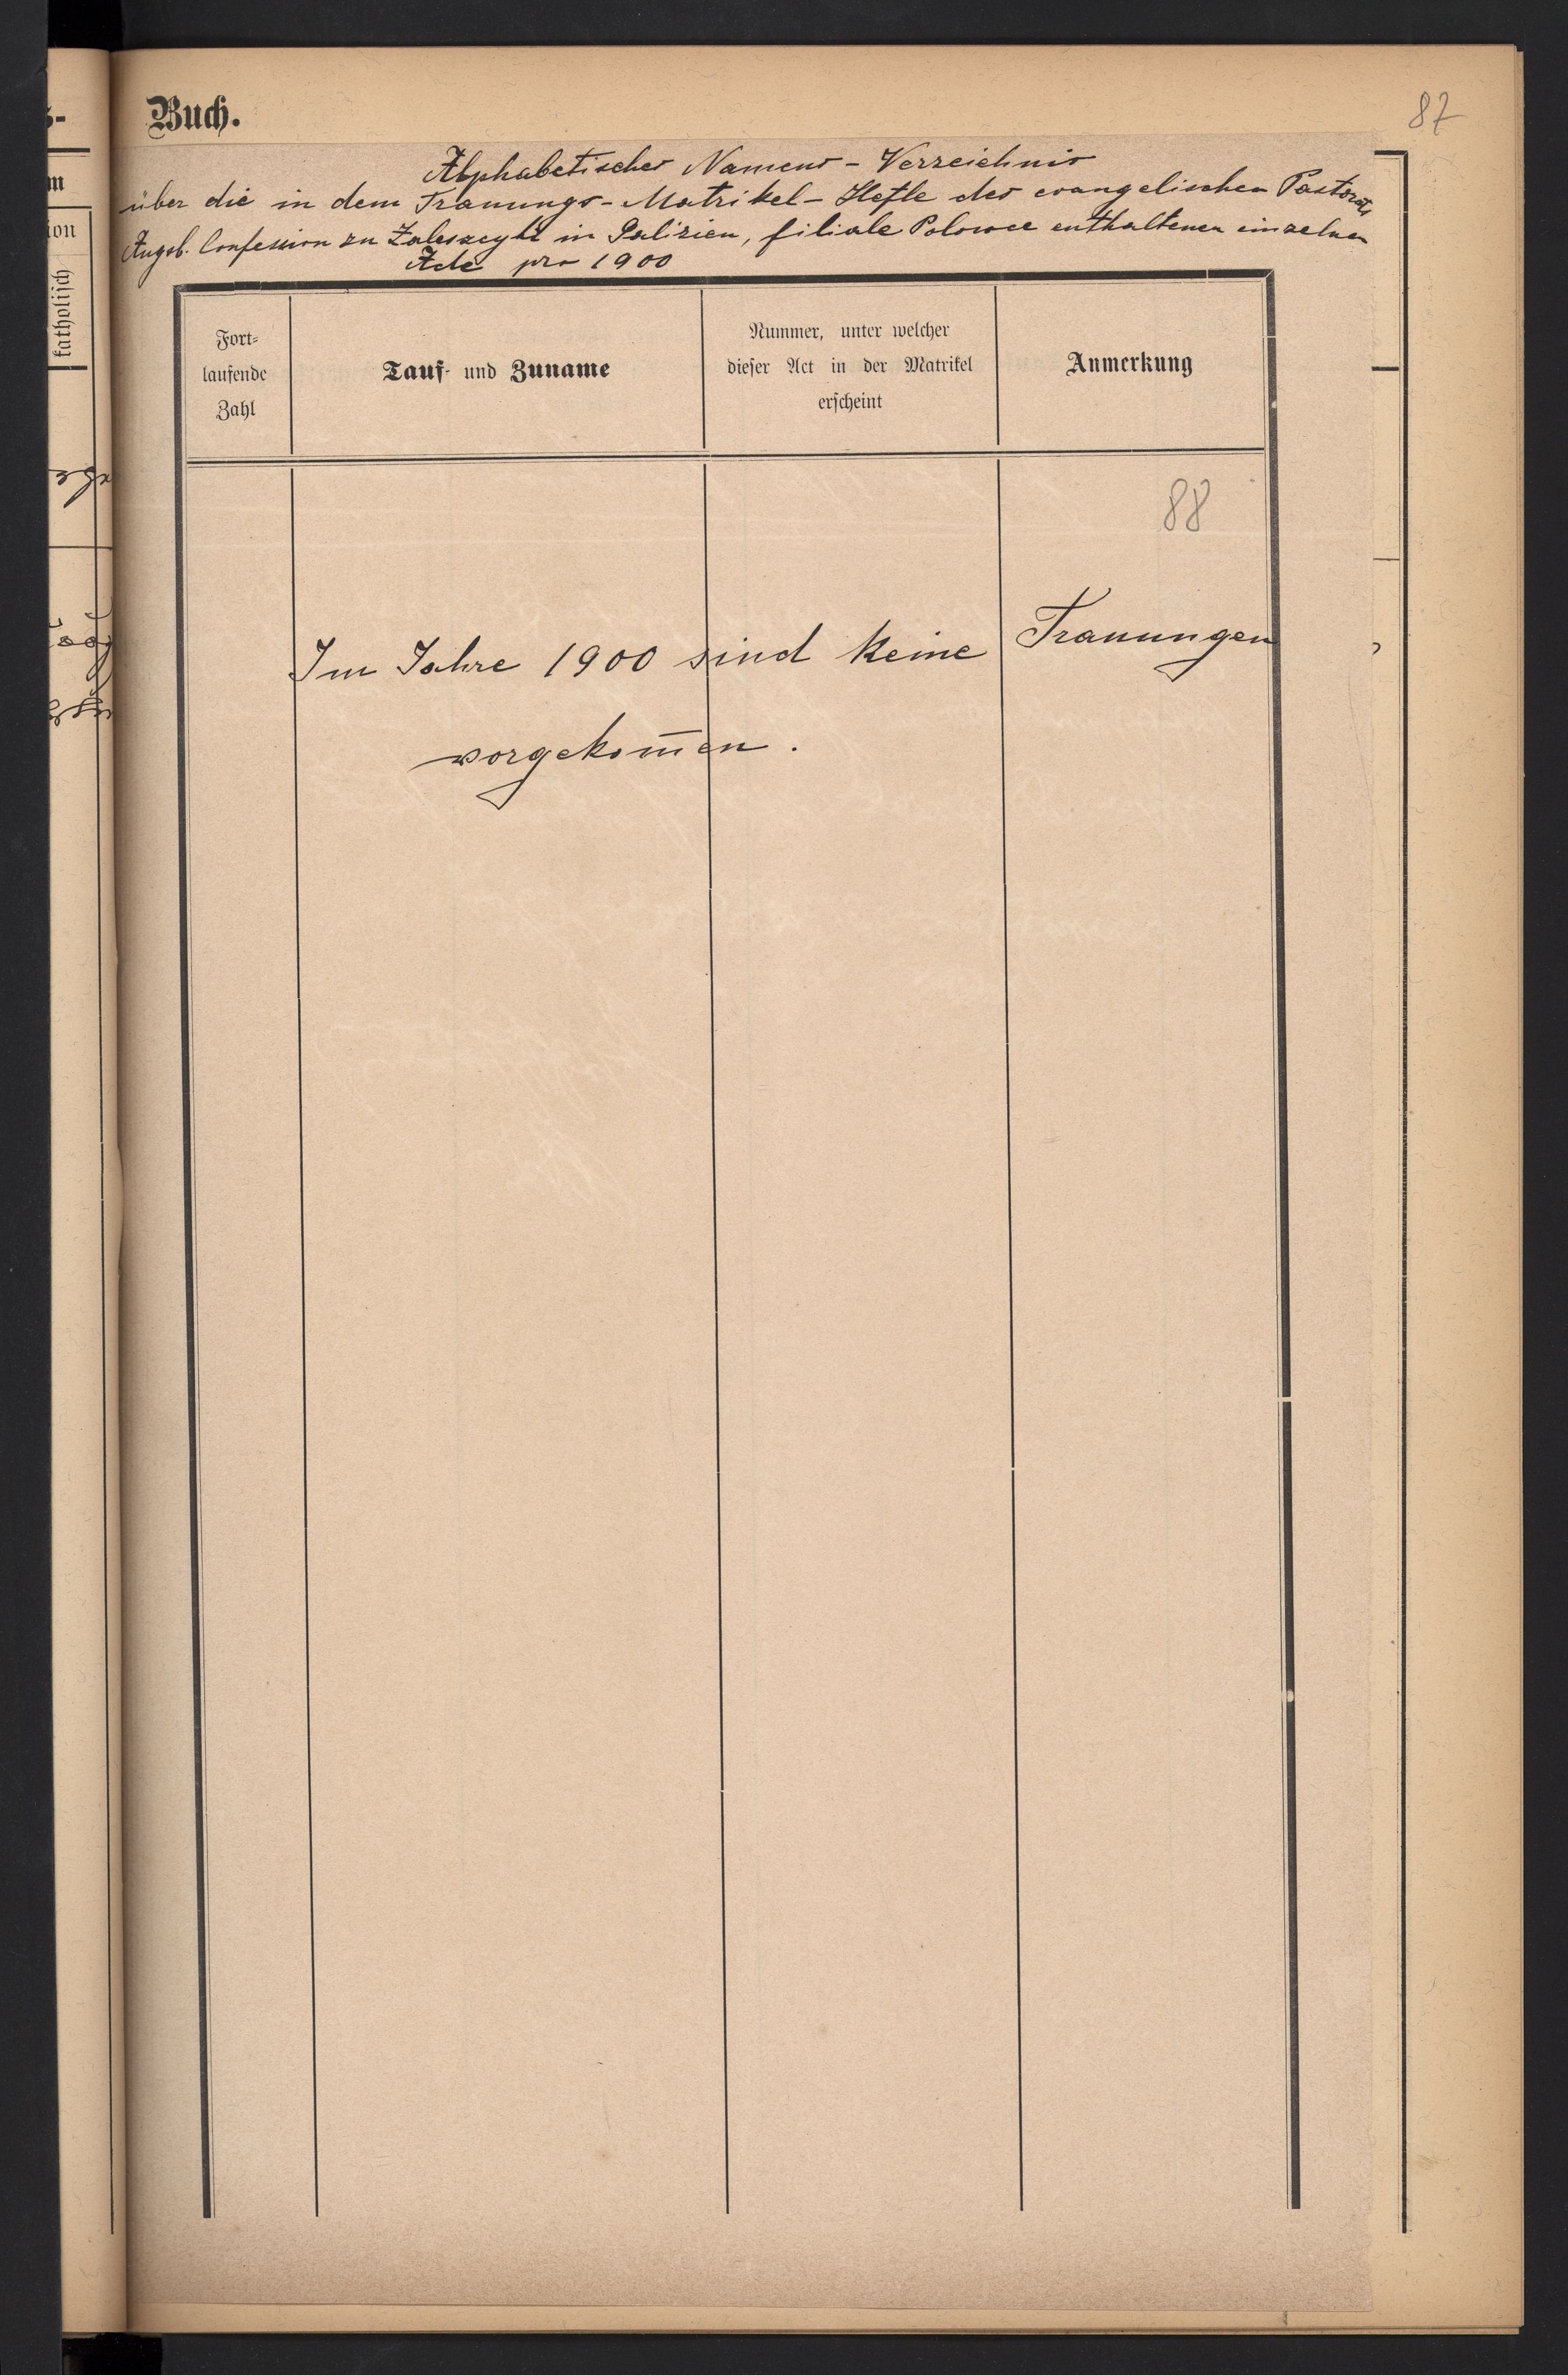 Buch.
87
Alphabetisches Namens-Verzeichnis
über die in dem Trauungs-Matrikel-Hefte des evangelischen Pastorats
Augsb. Confession zu Zaleszcyki in Galizien, filiale Polowce enthaltenen einzelnen
Acte pro 1900
katholisch
Fort-
laufende
Zahl
Tauf- und Zuname
Nummer, unter welcher
dieser Act in der Matrikel
erscheint
Anmerkung
88
Im Jahre 1900 sind keine Trauungen
vorgekom̄en.